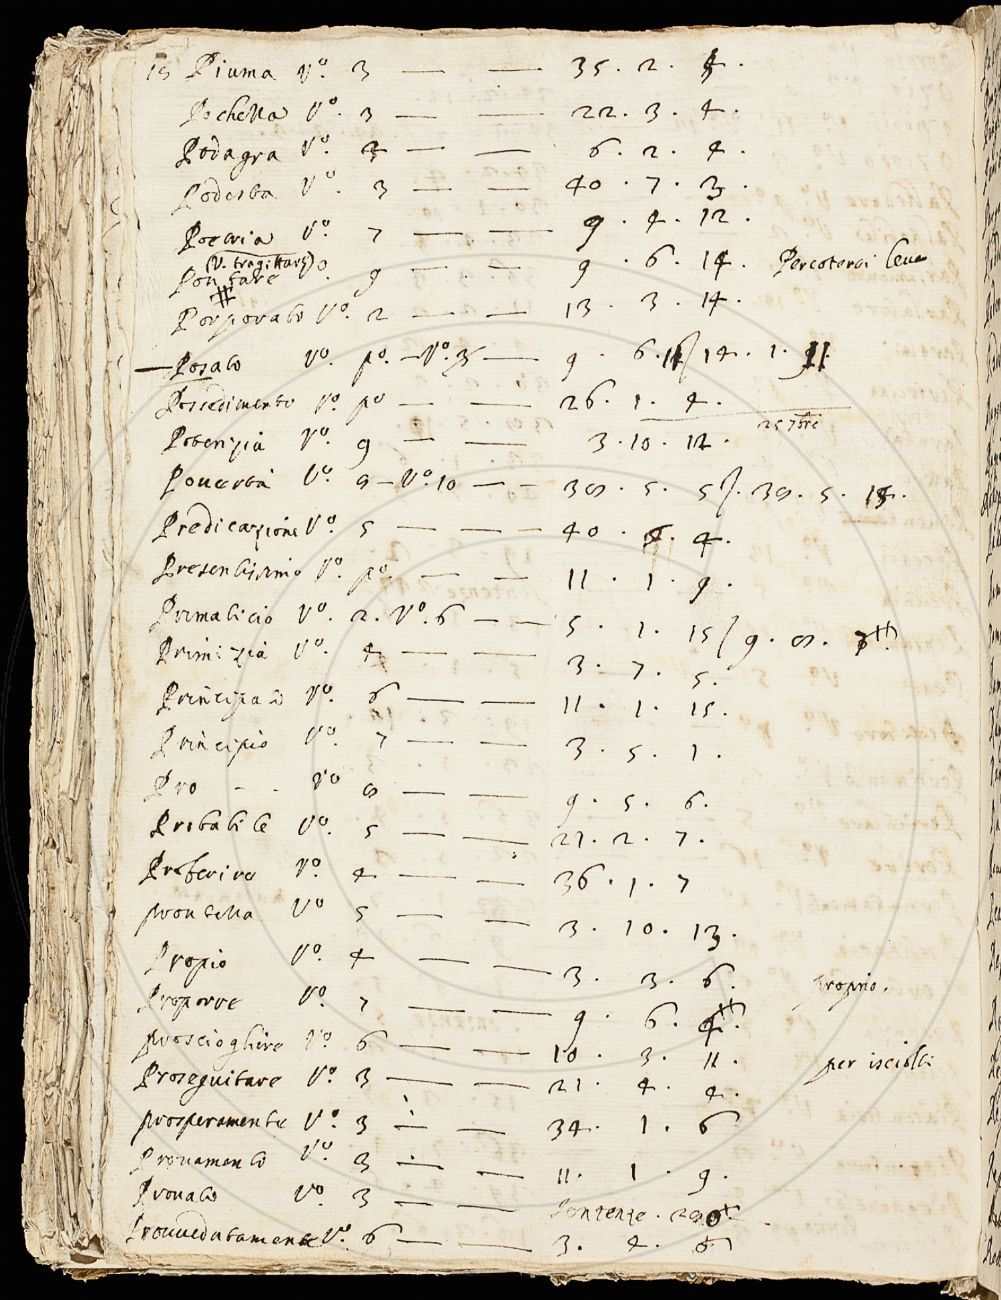 15 Piuma Vo. 3 — — 35. 2. 4.
Pochetta Vo. 3 — — 22. 3. 4.
Podagra Vo. 3 — — 6. 2. 4.
Podesta Vo. 3 — — 40. 7. 3.
Vo. 7 — — 9. 4. 12.
(V. tragittare)
Pontare o. 9 — — 9. 6. 14. Percotersi
Porporato Vo. 2 — — 13. 3. 14.
— Posato Vo. po. — Vo. 3 — 9. 6. 11 / 14. 1. 11
Possedimento Vo. po — — 26. 1. 4.
25 7bre
Potenzia Vo. 9 — — 3. 10. 12.
Pouertà Vo. 9 — Vo. 10 — — 38. 5. 5 /. 38. 5. 15.
Predicazione Vo. 5 — — — 40. 4. 4.
Presentissimo Vo. po — — 11. 1. 9.
Primaticio Vo. 2. Vo. 6 — — 5. 1. 15 / 9. 8. 7
Primizia Vo. 4 — — 3. 7. 5.
Principato Vo. 6 — — 11. 1. 15.
Principio Vo. 7 — — 3. 5. 1.
Pro - - Vo 8 — — 9. 5. 6.
Probabile Vo. 5 — — 21. 2. 7.
Proferire Vo. 4 — — 36. 1. 7
prontetta Vo 5 — — 3. 10. 13.
Propio Vo. 4 — — 3. 3. 6. proprio.
Proporre Vo. 7 — — 9. 6. 4.
prosciogliere Vo. 6 — — 10. 3. 11. per isciolti
Proseguitare Vo. 3 — — 21. 4. 4.
prosperamente Vo. 3 — — 34. 1. 6
Prouamento Vo. 3 — — 11. 1. 9.
Prouato Vo. 3 — — Sentenze.
Prouuedutamente Vo. 6 — — 3. 4. 6